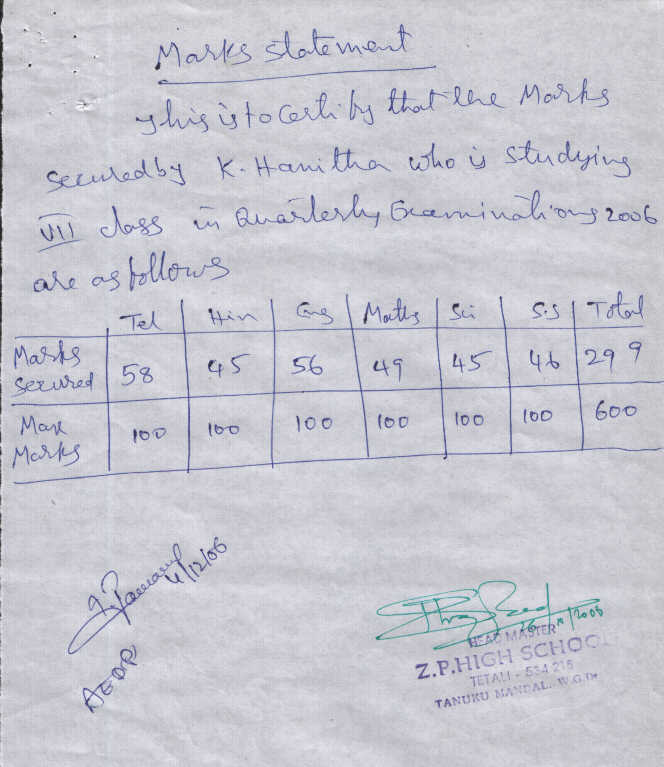 Marks statement
This is to Certify that the Marks
secured by K. Hanitha who is studying
VII class in Quarterly Examinations 2006
are as follows
Tel Hin Eng Maths Sci S.S Total
Marks secured 58 45 56 49 45 46 299
Max Marks 100 100 100 100 100 100 600
4/12/06
HEAD MASTER
Z.P.HIGH SCHOOL
TETALI - 534 218
TANUKU MANDAL. W.G.Dt